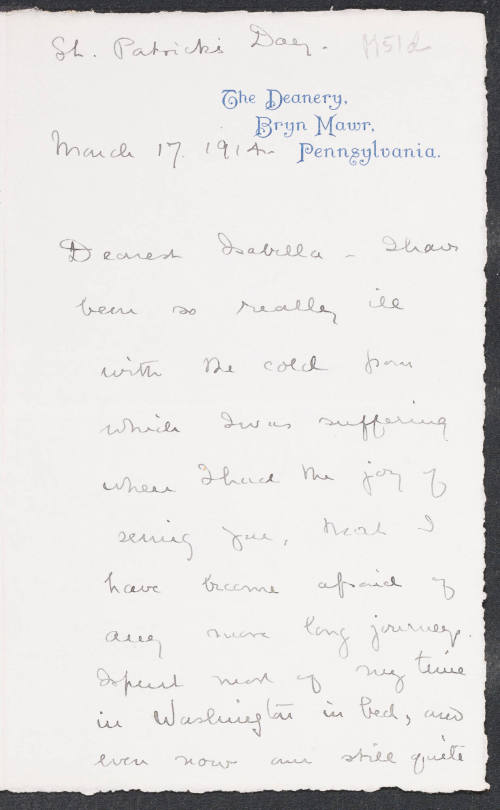 St. Patrick's Day.
The Deanery,
Bryn Mawr,
Pennsylvania.
March 17. 1914.
Dearest Isabella – I have
been so really ill
with the cold from
which I was suffering
when I had the joy of
seeing you, that I
have become afraid of
any more long journeys.
I spent most of my time
in Washington in bed, and
even now am still quite